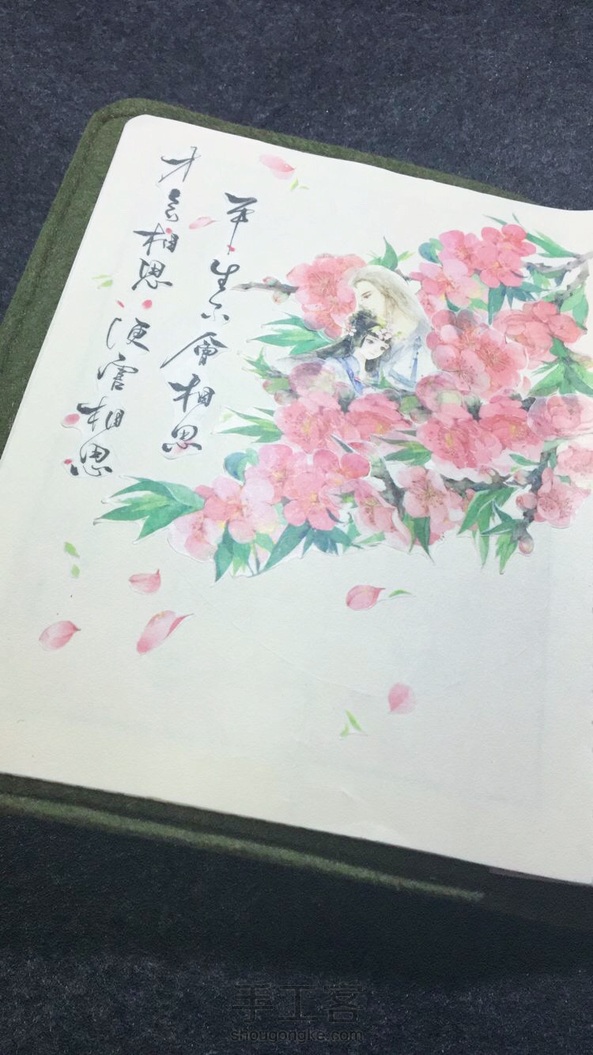 平生不會相思
才會相思
便害相思
手工客
shougongke.com